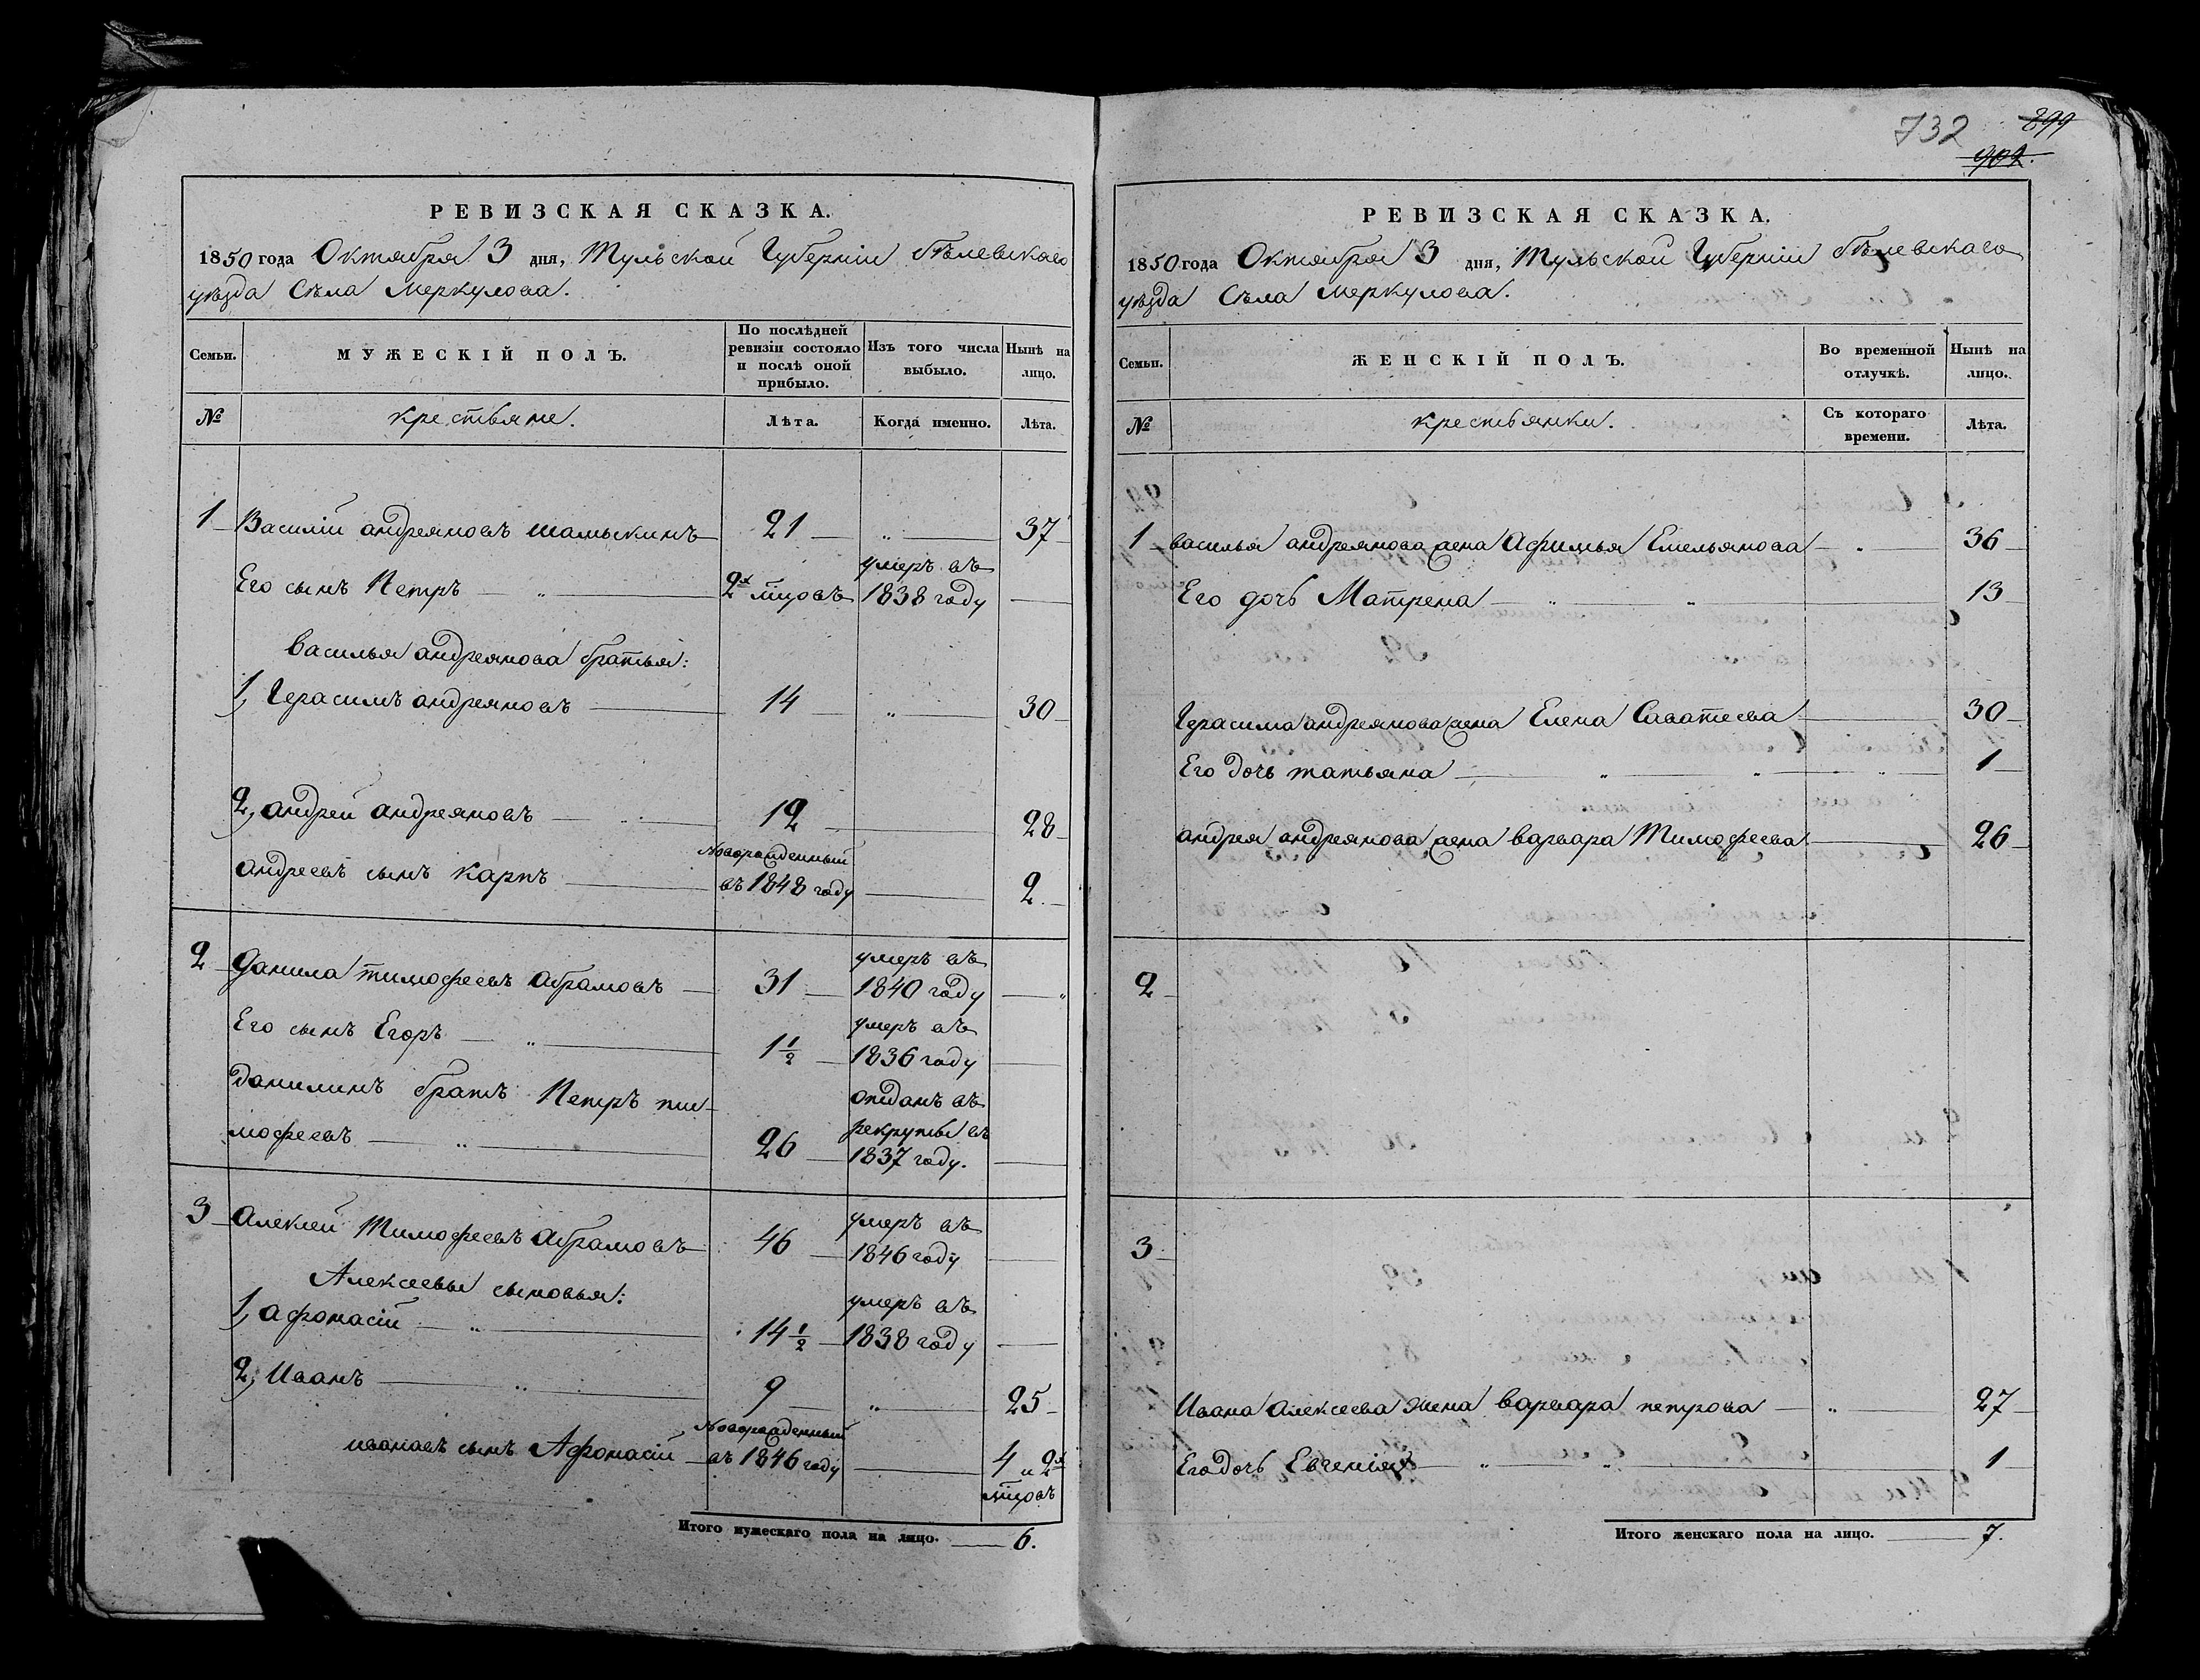 732 899
902.
РЕВИЗСКАЯ СКАЗКА.
1850 года Октября 3 дня, Тульской Губерніи Бѣлевскаго
уѣзда Села Меркулова.
Семьи. МУЖЕСКІЙ ПОЛЪ. По послѣдней ревизіи состояло и послѣ оной прибыло. Изъ того числа выбыло. Нынѣ на лицо.
№ крестьяне. Лѣта. Когда именно. Лѣта.
1 Василій андреяновъ шамыкинъ 21 „ 37
Его сынъ Петръ „ 2х мцовъ умеръ въ 1838 году
Василья андреянова братья:
1, Герасимъ андреяновъ 14 „ 30
2, андрей андреяновъ 12 28
андреевъ сынъ карпъ Новорожденный въ 1848 году 2.
2 Данила тимофеевъ абрамовъ 31 умеръ въ 1840 году „
Его сынъ Егоръ „ 1 1/2 умеръ въ 1836 году
Данилинъ братъ Петръ ти-
мофеевъ „ 26 отданъ въ рекруты въ 1837 году.
3 Алексей Тимофеевъ абрамовъ 46 умеръ въ 1846 году
Алексеевы сыновья:
1, афонасій „ 14 1/2 умеръ въ 1838 году
2, Иванъ „ 9 „ 25
ивановъ сынъ Афонасій Новорожденный въ 1846 году 4 и 2х мцовъ
Итого мужескаго пола на лицо. 6.
РЕВИЗСКАЯ СКАЗКА.
1850 года Октября 3 дня, Тульской Губерніи Бѣлевскаго
уѣзда Села Меркулова.
Семьи. ЖЕНСКІЙ ПОЛЪ. Во временной отлучкѣ. Нынѣ на лицо.
№ крестьянки. Съ котораго времени. Лѣта.
1 василья андреянова жена Афимья Емельянова „ 36
Его дочь Матрена „ „ 13
Герасима андреянова жена Елена Саватеева 30
Его дочь татьяна „ „ „ 1
андрея андреянова жена варвара Тимофеева 26
2
3
Ивана Алексеева жена варвара петрова „ 27
Его дочь Евгенія „ „ 1
Итого женскаго пола на лицо. 7.